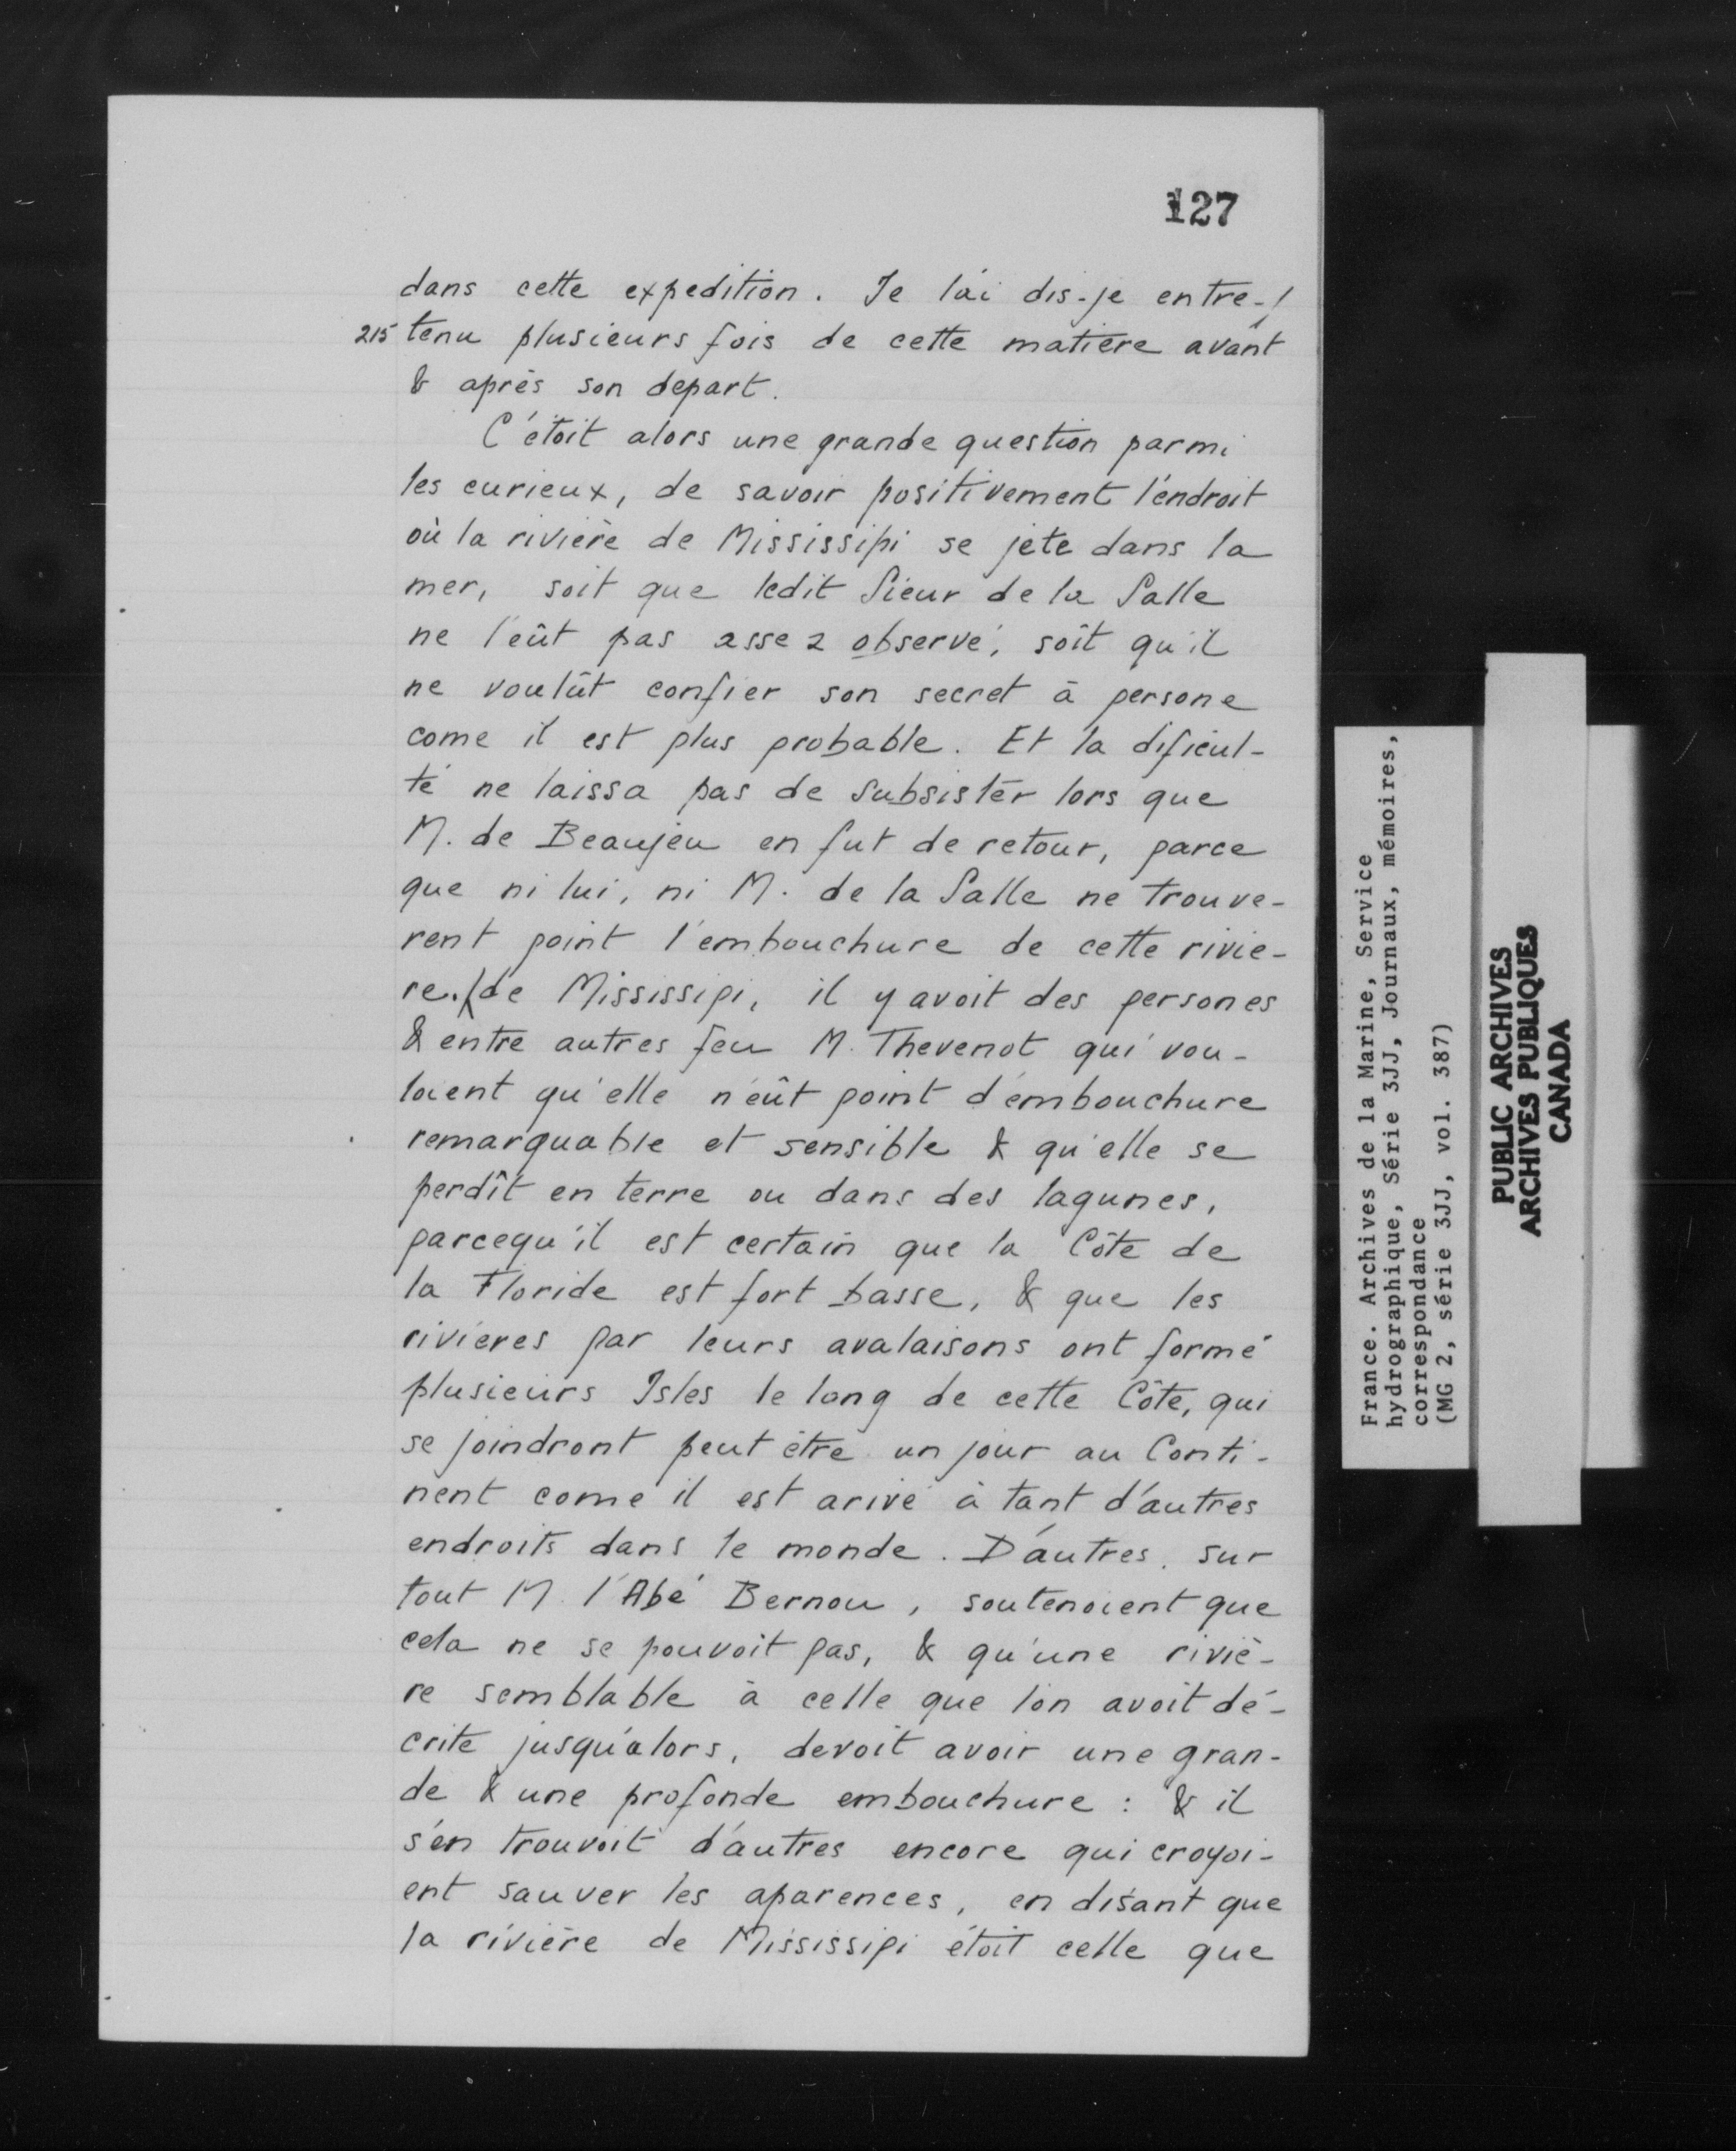 127
dans cette expedition. Je l'ai dis-je entre-/
215 tenu plusieurs fois de cette matiere avant
& après son depart.
C'étoit alors une grande question parmi
les curieux, de savoir positivement l'endroit
où la rivière de Mississipi se jete dans la
mer, soit que ledit Sieur de la Salle
ne l'eût pas assez observé, soit qu'il
ne voulût confier son secret à persone
come il est plus probable. Et la dificul-
té ne laissa pas de subsister lors que
M. de Beaujeu en fut de retour, parce
que ni lui, ni M. de la Salle ne trouve-
rent point l'embouchure de cette rivie-
re. / de Mississipi, il y avoit des persones
& entre autres feu M. Thevenot qui vou-
loient qu'elle n'eût point d'embouchure
remarquable et sensible & qu'elle se
perdît en terre ou dans des lagunes,
parcequ'il est certain que la Côte de
la Floride est fort basse, & que les
rivieres par leurs avalaisons ont formé
plusieurs Isles le long de cette Côte, qui
se joindront peut être un jour au Conti-
nent come il est arivé à tant d'autres
endroits dans le monde. D'autres, sur
tout M. l'Abé Bernou, soutenoient que
cela ne se pouvoit pas, & qu'une riviè-
re semblable à celle que l'on avoit dé-
crite jusqu'alors, devoit avoir une gran-
de & une profonde embouchure : & il
s'en trouvoit d'autres encore qui croyoi-
ent sauver les aparences, en disant que
la rivière de Mississipi étoit celle que
France. Archives de la Marine, Service
hydrographique, Série 3JJ, Journaux, mémoires,
correspondance
(MG 2, série 3JJ, vol. 387)
PUBLIC ARCHIVES
ARCHIVES PUBLIQUES
CANADA